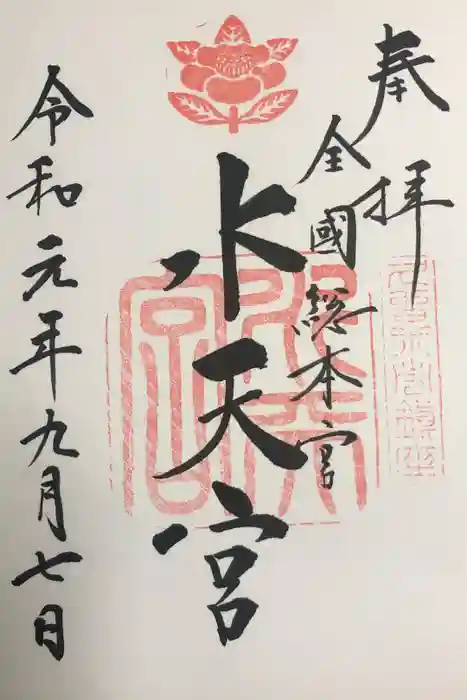 奉拝
全國総本宮
水天宮
令和元年九月七日